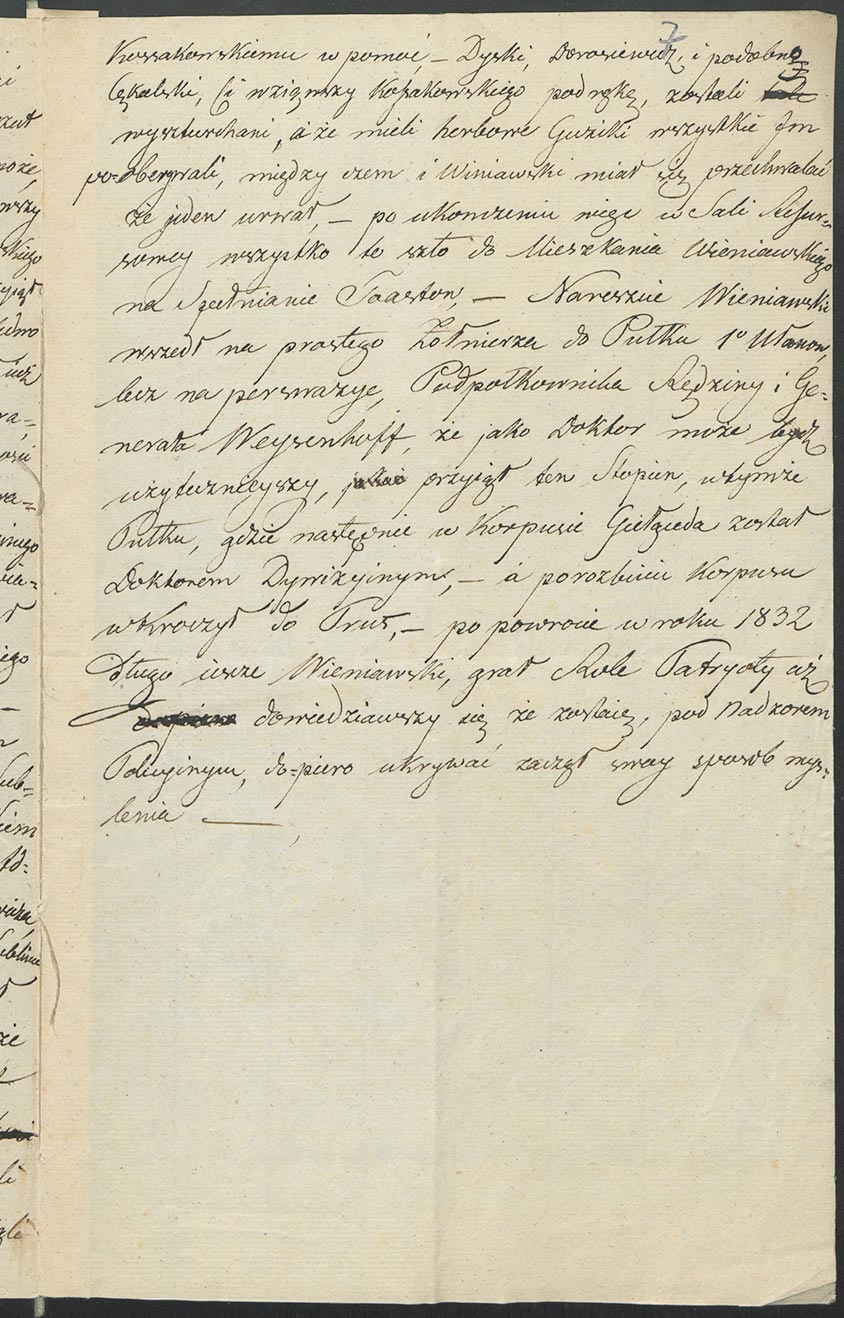 7
Kossakowskiemu w pomoć – Dyski, Dorosiewicz, i podobno
Łękalski, Ci wziąwszy Kossakowskiego pod rękę, zostali
wyszturchani, á że mieli herbowe Guziki wszystkie Im
po-obrywali, między czem i Winiawski miał się przechwalać
że jeden urwał, – po ukonczeniu niego w Sali Resur-
sowey wszystko to szło do Mieszkania Wieniawskiego
na Spełnianie Toastow, – Nareszcie Wieniawski
wszedł na prostego Żołnierza do Pułku 1º Ułanow,
lecz na perswazye, Podpołkownika Rędziny i Ge-
nerała Weysenhoff, że jako Doktor może bydz
użytecznieyszy, przyiął ten Stopien, w tymże
Pułku, gdzie następnie w Korpusie Giełguda został
Doktorem Dywizyinym, – á po rozbiciu Korpusu
wkroczył do Prus, – po powrocie w roku 1832
Długo ieszcze Wieniawski, grał Role Patryoty aż
dowiedziawszy się że zostaie, pod Nadzorem
Policyinym, do-piero ukrywać zaczął swoy sposób mys-
lenia —